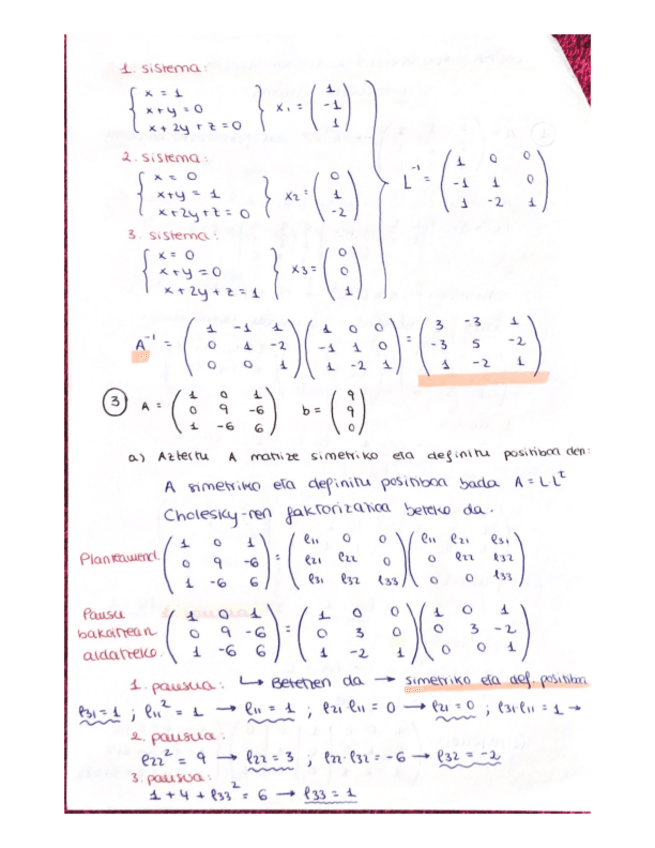 1. sistema:
{ x = 1
x+y = 0
x+2y+z = 0 } x₁ = ( 1 -1 1 )
2. sistema:
{ x = 0
x+y = 1
x+2y+z = 0 } x₂ = ( 0 1 -2 )
L⁻¹ = ( 1 0 0
-1 1 0
1 -2 1 )
3. sistema:
{ x = 0
x+y = 0
x+2y+z = 1 } x₃ = ( 0 0 1 )
A⁻¹ = ( 1 -1 1 ) ( 1 0 0 ) = ( 3 -3 1 )
( 0 1 -2 ) ( -1 1 0 ) ( -3 5 -2 )
( 0 0 1 ) ( 1 -2 1 ) ( 1 -2 1 )
③ A = ( 1 0 1 ) b = ( 9 )
( 0 9 -6 ) ( 9 )
( 1 -6 6 ) ( 0 )
a) Aztertu A matrize simetriko eta definitu positiboa den:
A simetriko eta definitu positiboa bada A = L Lᵗ
Cholesky-ren faktorizatioa beteko da.
Planteamend.
( 1 0 1 ) = ( l₁₁ 0 0 ) ( l₁₁ l₂₁ l₃₁ )
( 0 9 -6 ) ( l₂₁ l₂₂ 0 ) ( 0 l₂₂ l₃₂ )
( 1 -6 6 ) ( l₃₁ l₃₂ l₃₃ ) ( 0 0 l₃₃ )
Pausu
bakoitzean
aldatzeko.
( 1 0 1 ) = ( 1 0 0 ) ( 1 0 1 )
( 0 9 -6 ) ( 0 3 0 ) ( 0 3 -2 )
( 1 -6 6 ) ( 1 -2 1 ) ( 0 0 1 )
1. pausua: ↳ Betetzen da → simetriko eta def. positiboa
l₃₁ = 1 ; l₁₁² = 1 → l₁₁ = 1 ; l₂₁·l₁₁ = 0 → l₂₁ = 0 ; l₃₁·l₁₁ = 1 →
2. pausua:
l₂₂² = 9 → l₂₂ = 3 ; l₂₂·l₃₂ = -6 → l₃₂ = -2
3. pausua:
1 + 4 + l₃₃² = 6 → l₃₃ = 1